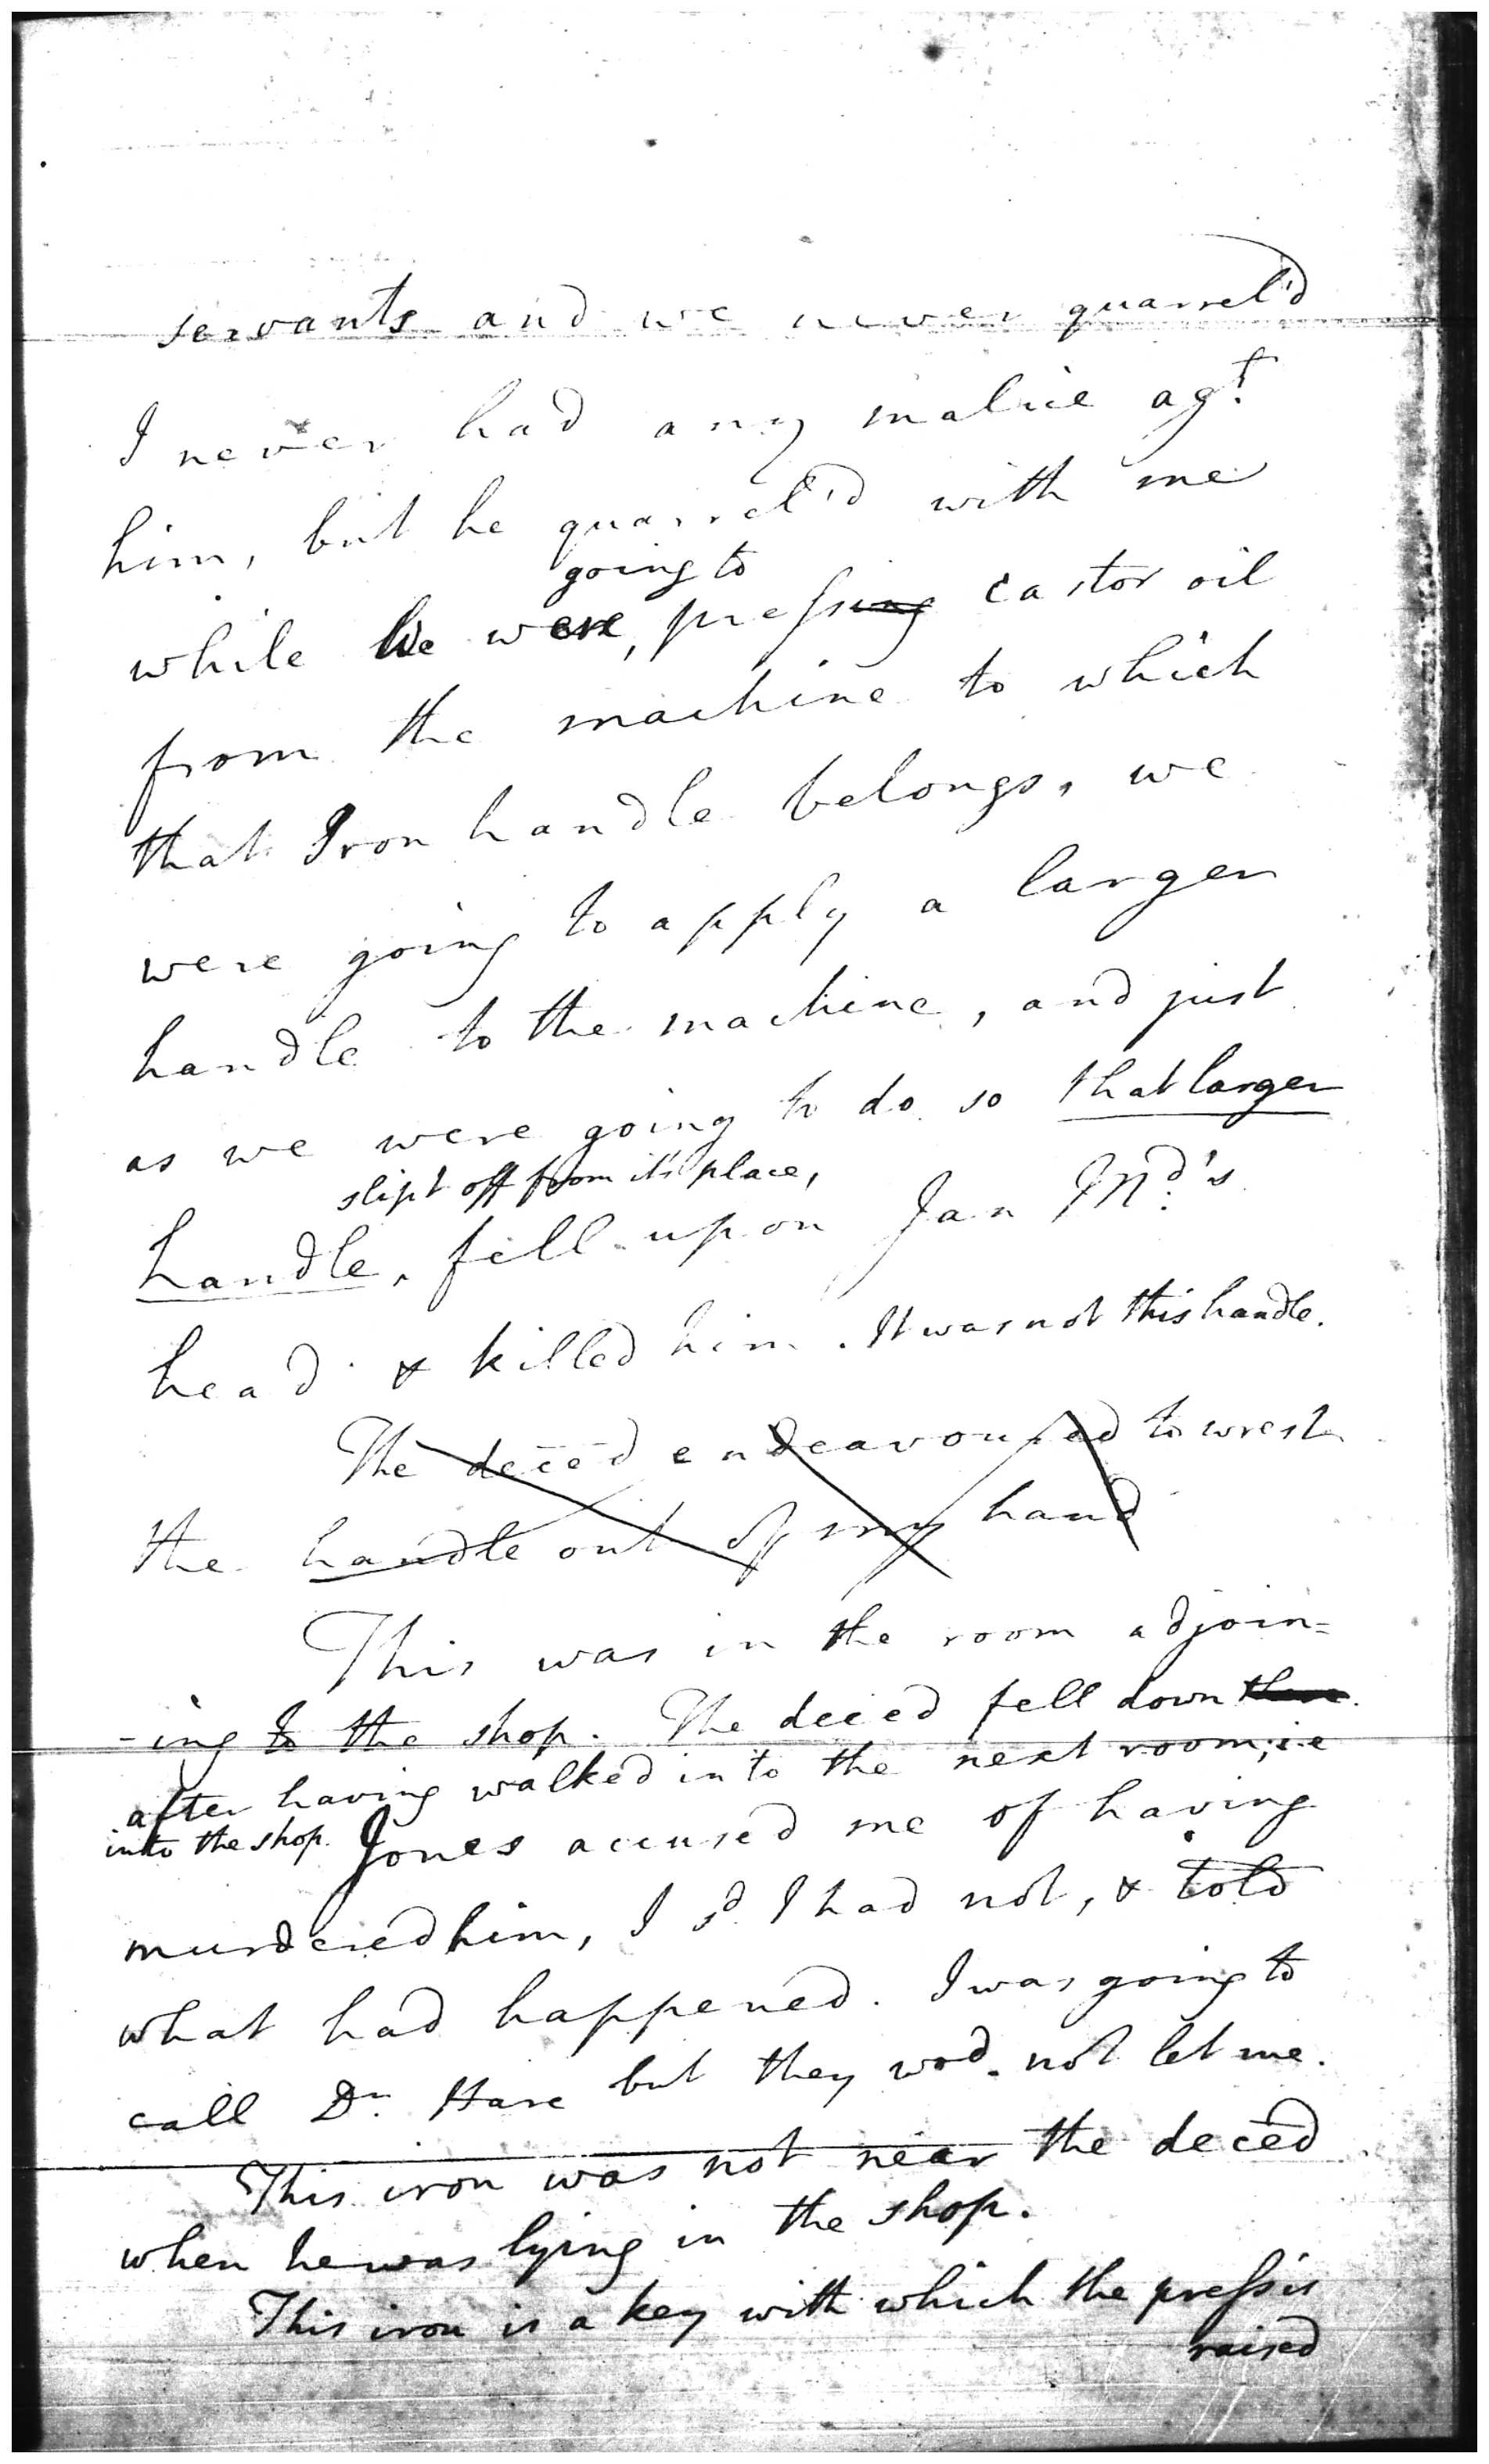 servants and we never quarrel'd
I never had any malice agt.
him, but he quarrel'd with me
going to
while we were, pressing castor oil
from the machine to which
that Iron handle belongs, we
were going to apply a larger
handle to the machine, and just
as we were going to do so that larger
slipt off from its place,
handle, fell upon Jan Md.'s
head & killed him. It was not this handle.
The deceed endeavoured to wrest
the handle out of my hand
This was in the room adjoin=
-ing to the shop. The deceed fell down there.
after having walked into the next room, i.e
into the shop. Jones accused me of having
murdered him, I sd. I had not, & told
what had happened. I was going to
call Dr. Hare but they wod. not let me.
This iron was not near the deceed
when he was lying in the shop.
This iron is a key with which the press is
raised